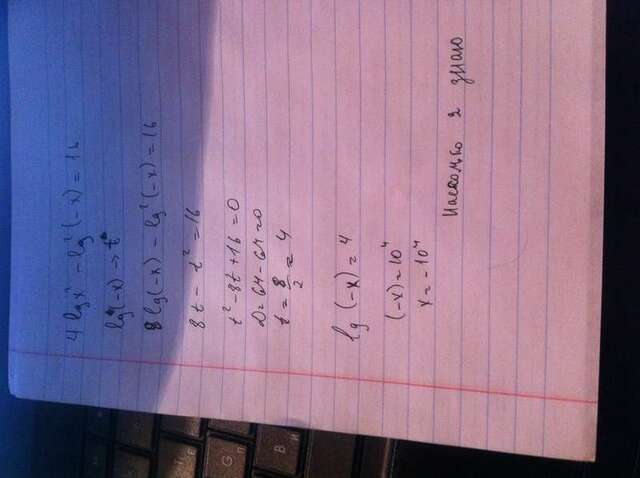 4 lg x² - lg² (-x) = 16
lg (-x) → t
8 lg (-x) - lg² (-x) = 16
8t - t² = 16
t² - 8t + 16 = 0
D = 64 - 64 = 0
t = 8/2 = 4
lg (-x) = 4
(-x) = 10⁴
x = -10⁴
Насколько я знаю